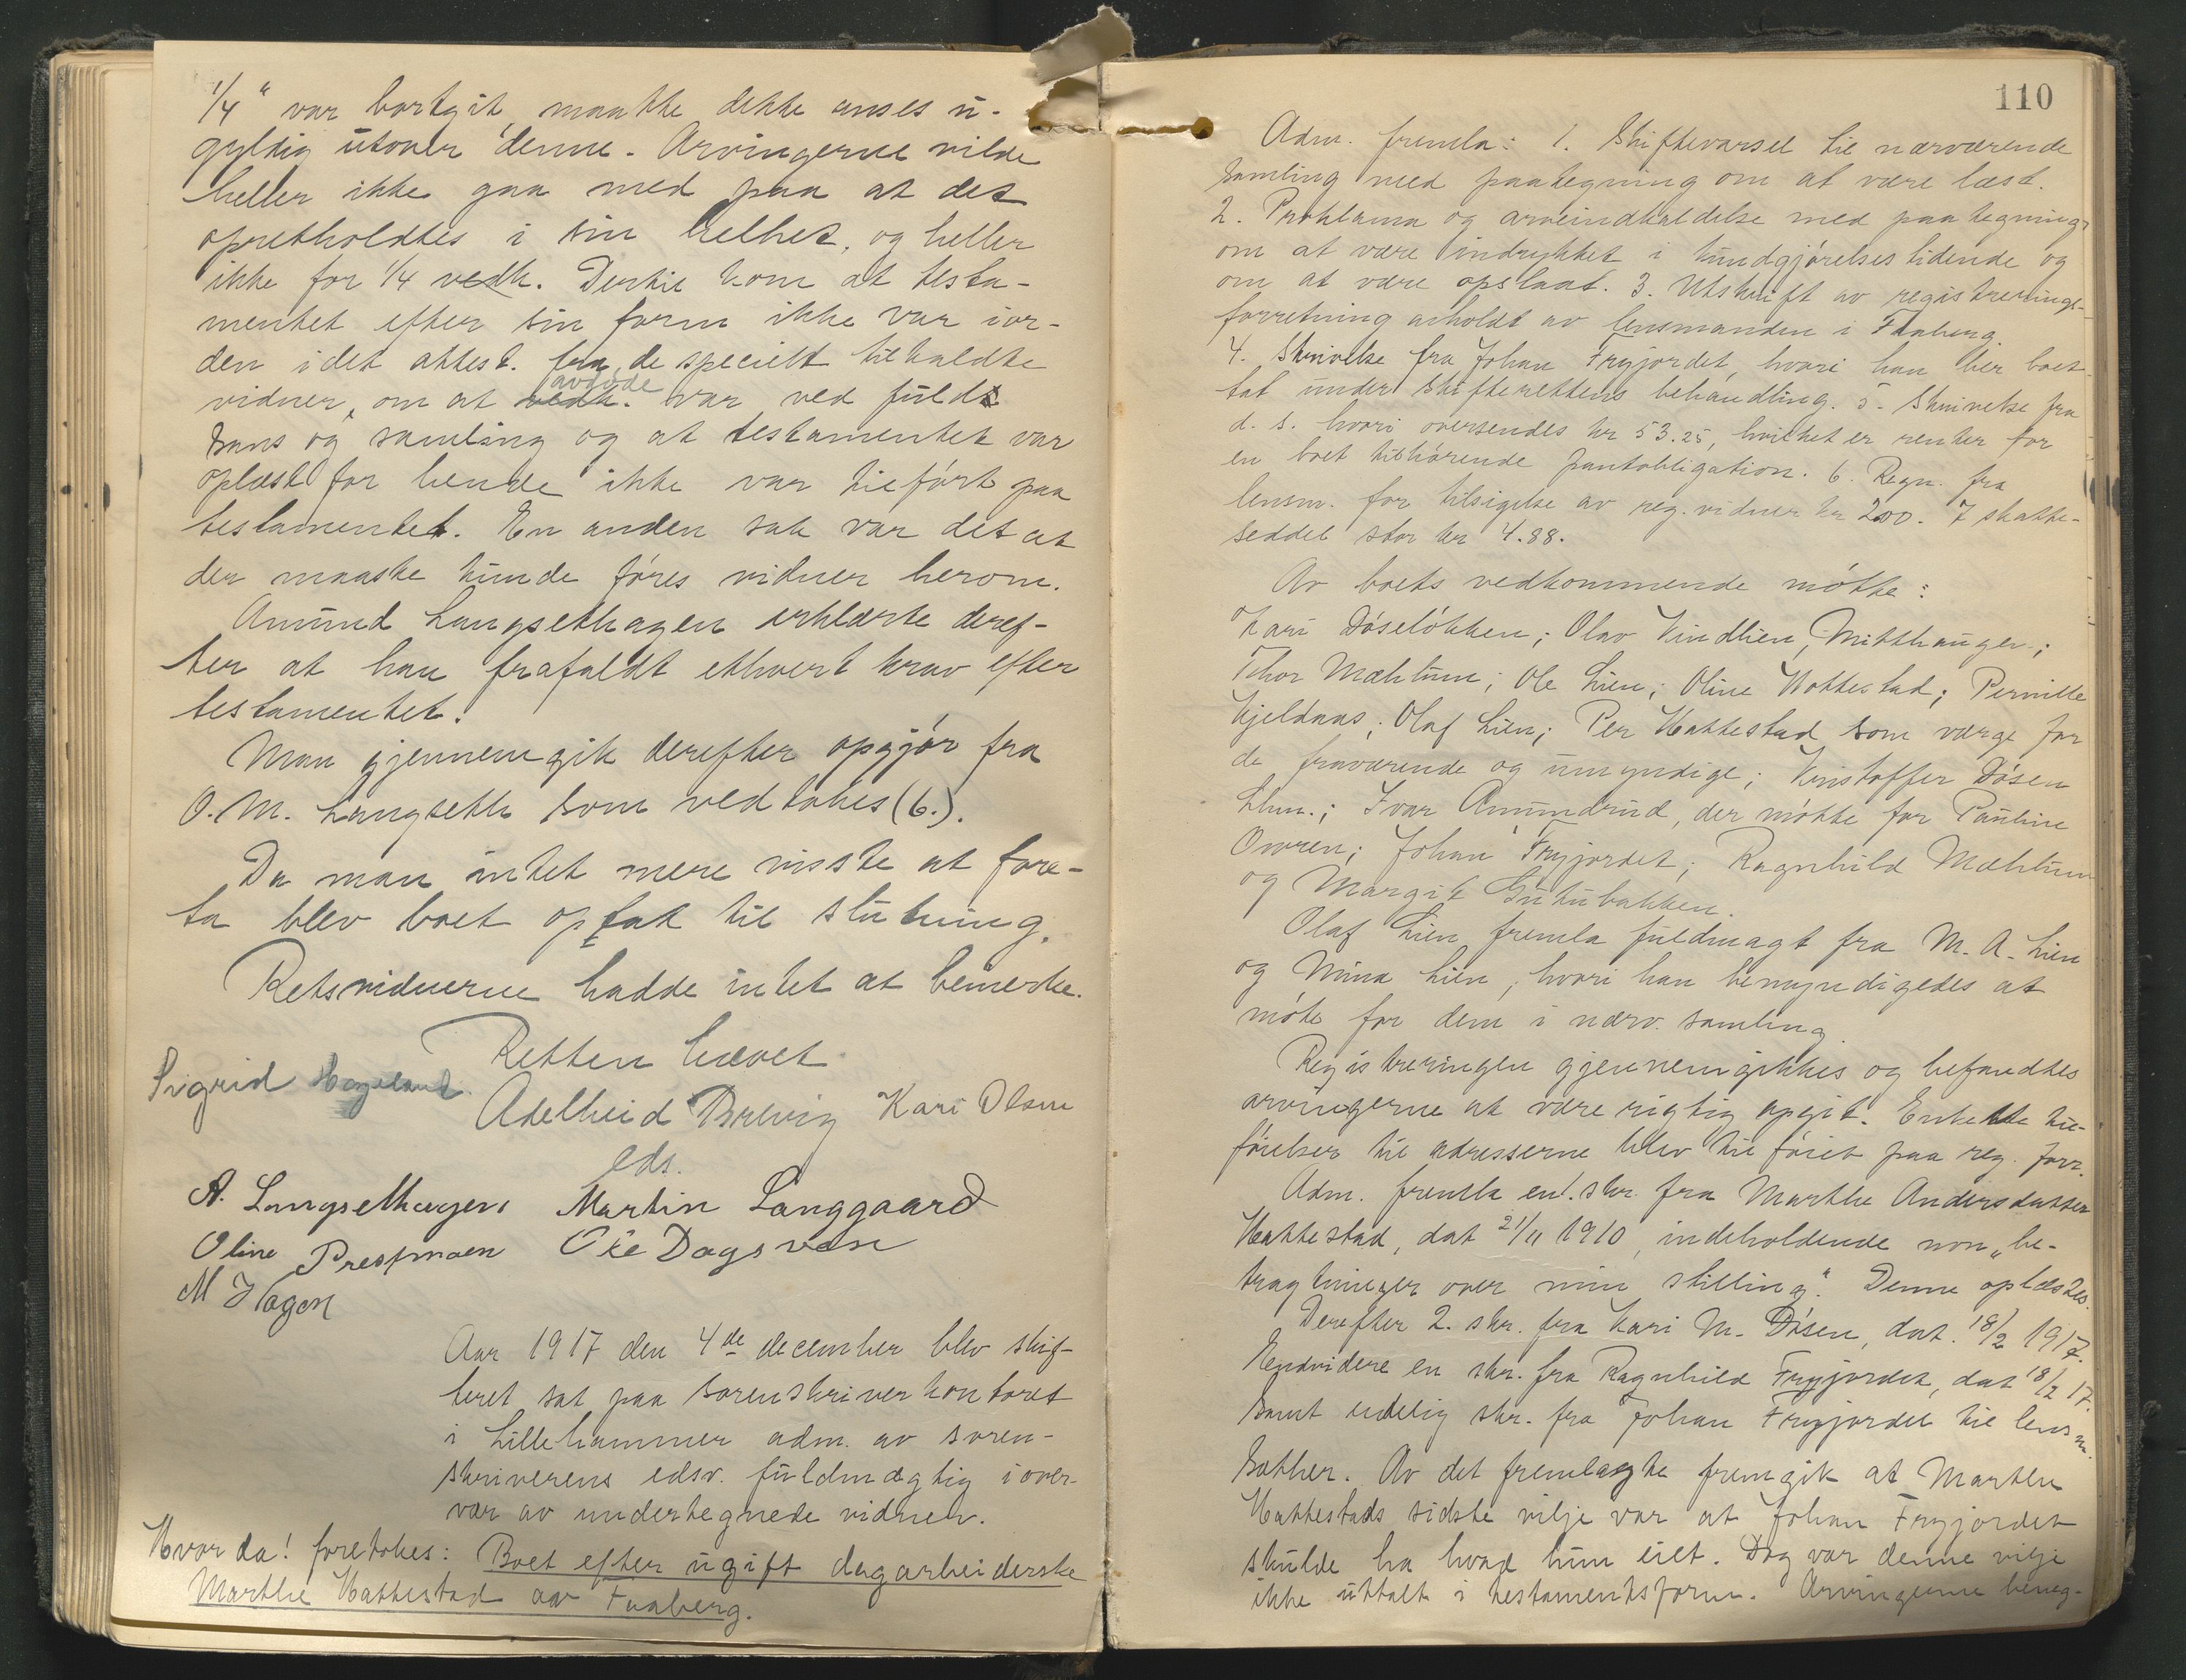 1/4" var bortgit, maatte dette anses u-
gyldig utover denne. Arvingerne vilde
heller ikke gaa med paa at det
opretholdtes i sin helhet, og heller
ikke for 1/4 vedk. Dertil kom at testa-
mentet efter sin form ikke var i or-
den idet attest. fra de specielt tilkaldte
vidner, om at vedk. avdøde var ved fuld
sans og samling og at testamentet var
oplæst for hende ikke var tilført paa
testamentet. En anden sak var det at
der maaske kunde føres vidner herom.
Amund Langsethagen erklærte deref-
ter at han frafaldt ethvert krav efter
testamentet.
Man gjennemgik derefter opgjør fra
O. M. Langseth som vedtokes (6.).
Da man intet mere visste at fore-
ta blev boet optat til slutning.
Retsvidnerne hadde intet at bemerke.
Retten hævet
Sigrid Hageland. Adelheid Brevig Kari Olsen
eds.
A. Langsethagen Martin Langgaard
Oline Prestmoen Ole Dagsvan
M Hagen
Aar 1917 den 4de december blev skif-
teret sat paa sorenskriverkontoret
i Lillehammer adm. av soren-
skriverens edsv. fuldmægtig i over-
vær av undertegnede vidner.
Hvor da! foretokes: Boet efter ugift dagarbeiderske
Marthe Hattestad av Faaberg.
110
Adm. fremla: 1. Skiftevarsel til nærværende
samling med paategning om at være læst.
2. Proklama og arveindkaldelse med paategning
om at være indrykket i kundgjørelsestidende og
om at være opslaat. 3. Utskrift av registrerings-
forretning avholdt av lensmanden i Faaberg.
4. Skrivelse fra Johan Frygjordet, hvori han ber boet
tat under skifterettens behandling. 5. Skrivelse fra
d. s. hvori oversendes kr 53.25, hvilket er renter for
en boet tilhørende pantobligation. 6. Regn. fra
lensm. for tilsigelse av reg. vidner kr 2.00. 7 skatte-
seddel stor kr 4.88.
Av boets vedkommende møtte:
Kari Døseløkken; Olav Vindlien, Mitthaugen;
Thor Mæhlum; Ole Lien; Oline Hattestad; Pernille
Kjeldaas; Olaf Lien; Per Hattestad som værge for
de fraværende og umyndige; Kristoffer Døsen
Lhm.; Ivar Amundrud, der møtte for Pauline
Owren; Johan Frygjordet; Ragnhild Mæhlum
og Margit Gutubakken.
Olaf Lien fremla fuldmagt fra M. A. Lien
og Mina Lien, hvori han bemyndigedes at
møte for dem i nærv. samling.
Registreringen gjennemgikkes og befandtes
arvingerne at være rigtig opgit. Enkelte til-
føielser til adresserne blev tilføiet paa reg. forr.
Adm. fremla en 1. skr. fra Marthe Andersdatter
Hattestad, dat 21/11 1910, indeholdende non „be-
tragtninger over min stilling". Denne oplæstes.
Derefter 2. skr. fra Kari M. Døsen, dat. 18/2 1917.
Endvidere en skr. fra Ragnhild Frygjordet, dat 18/2 17.
samt endelig skr. fra Johan Frygjordet til lensm.
Sæther. Av det fremlagte fremgik at Marthe
Hattestads sidste vilje var at Johan Frygjordet
skulde ha hvad hun eiet. Dog var denne vilje
ikke uttalt i testamentsform. Arvingerne beneg-